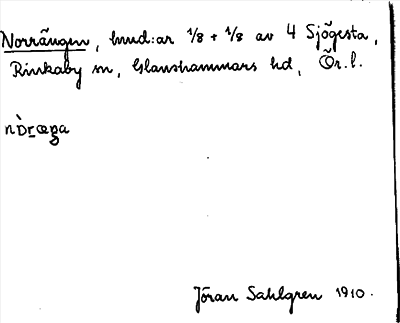 Norrängen, hmd:ar 1/8 + 1/8 av 4 Sjögesta,
Rinkaby sn, Glanshammars hd, Ör. l.
Jöran Sahlgren 1910.